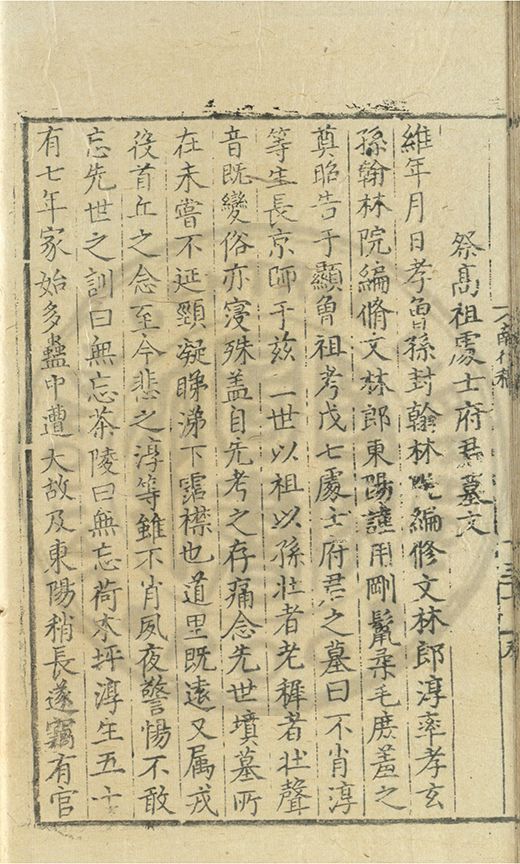 祭高祖處士府君墓文
維年月日孝曾孫封翰林院編修文林郎淳率孝玄
孫翰林院編脩文林郎東陽謹用剛鬣柔毛庶羞之
奠昭告于顯曾祖考戊七處士府君之墓曰不肖淳
等生長京師于兹一世以祖以孫壯者老穉者壯聲
音既變俗亦寖殊盖自先考之存痛念先世墳墓所
在未嘗不延頸凝睇涕下霑襟也道里既遠又属戎
役首丘之念至今悲之淳等雖不肖夙夜警惕不敢
忘先世之訓曰無忘茶陵曰無忘荷木坪淳生五十
有七年家始多蠱中遭大故及東陽稍長遂竊有官